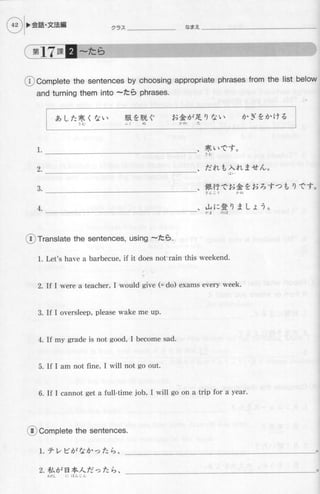 42 ▶会話・文法編 クラス なまえ
第17課 2 〜たら
Ⅰ Complete the sentences by choosing appropriate phrases from the list below
and turning them into 〜たら phrases.
あした寒くない 服を脱ぐ お金が足りない かぎをかける
1. 、寒いです。
2. 、だれも入れません。
3. 、銀行でお金をおろすつもりです。
4. 、山に登りましょう。
Ⅱ Translate the sentences, using 〜たら.
1. Let's have a barbecue, if it does not rain this weekend.
2. If I were a teacher, I would give (=do) exams every week.
3. If I oversleep, please wake me up.
4. If my grade is not good, I become sad.
5. If I am not fine, I will not go out.
6. If I cannot get a full-time job, I will go on a trip for a year.
Ⅲ Complete the sentences.
1. テレビがなかったら、 。
2. 私が日本人だったら、 。